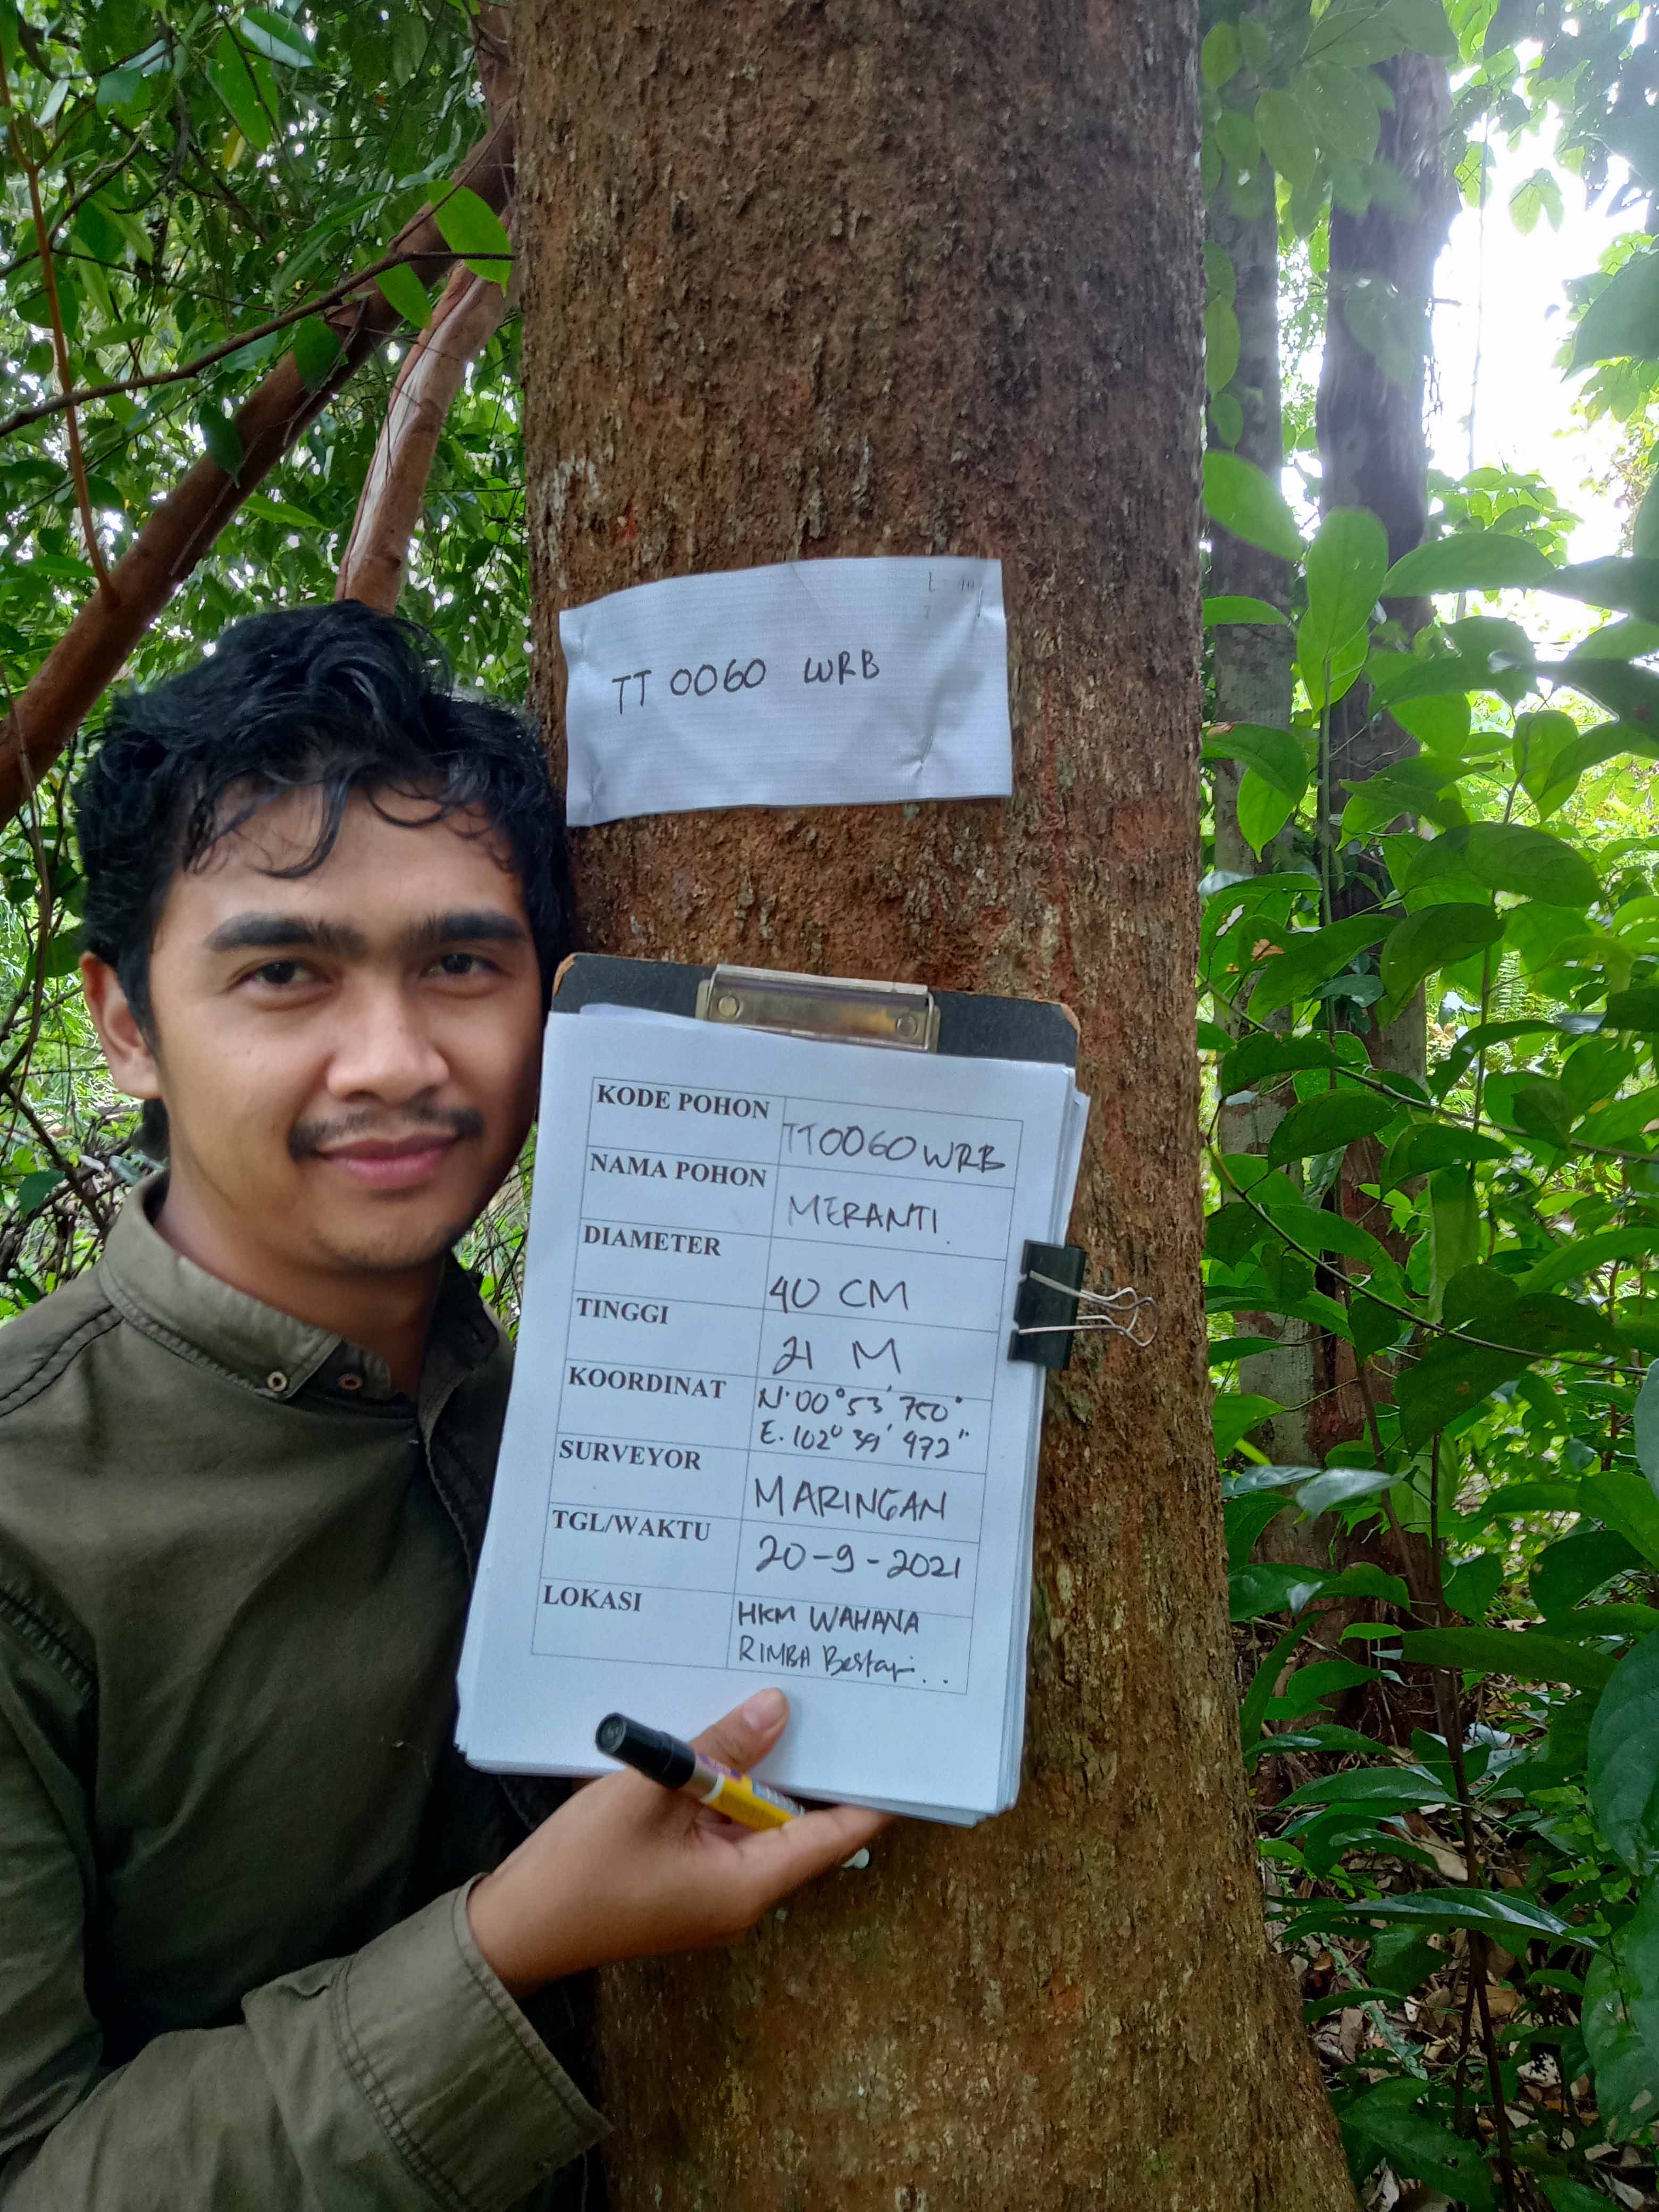 TT 0060 WRB
KODE POHON TT0060 WRB
NAMA POHON MERANTI
DIAMETER 40 CM
TINGGI 21 M
KOORDINAT N.00° 53' 750"
E. 102° 39' 972"
SURVEYOR MARINGAN
TGL/WAKTU 20-9-2021
LOKASI HKM WAHANA
RIMBA Bestari..